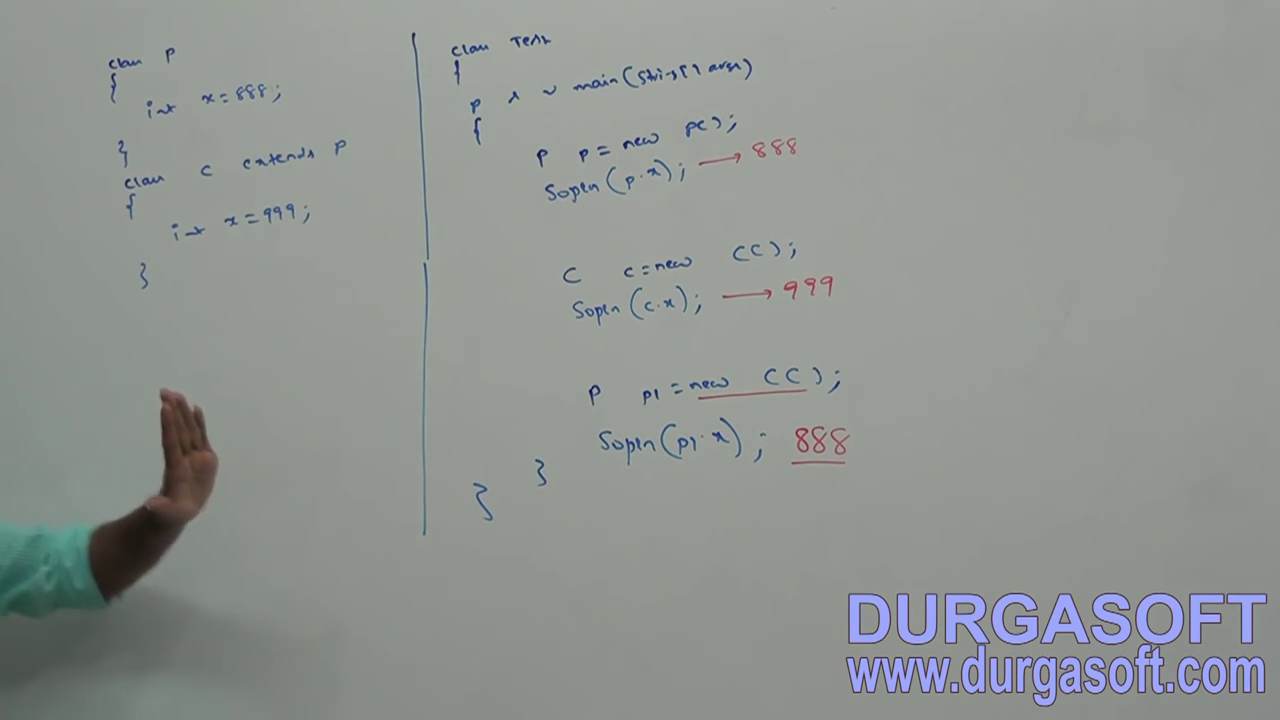 class P
{
int x=888;
}
class C extends P
{
int x=999;
}
class Test
{
P s v main(String[] args)
{
P p=new P();
Sopln(p.x); → 888
C c=new C();
Sopln(c.x); → 999
P p1=new C();
Sopln(p1.x); 888
}
}
DURGASOFT
www.durgasoft.com